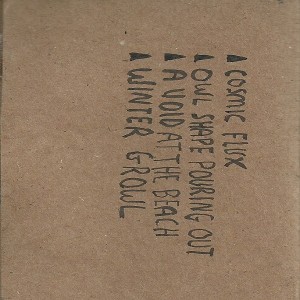 ▲ COSMIC FLUX
▲ OWL SHAPE POURING OUT
▲ A VOID AT THE BEACH
▲ WINTER GROWL